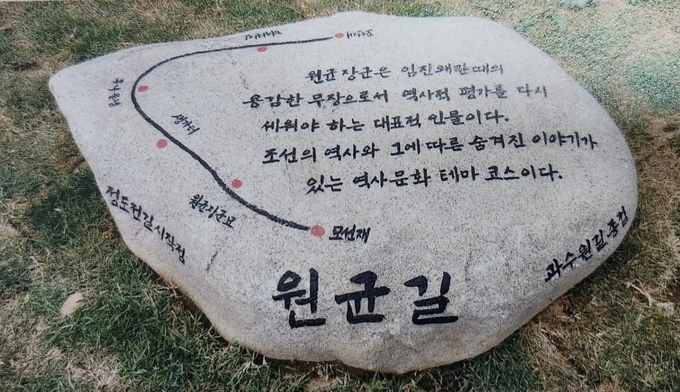 원균장군은 임진왜란 때의
용감한 무장으로서 역사적 평가를 다시
세워야 하는 대표적 인물이다.
조선의 역사와 그에 따른 숨겨진 이야기가
있는 역사문화 테마 코스이다.
원균장군묘
모선재
정도전길시작점
과수원길종점
원균길